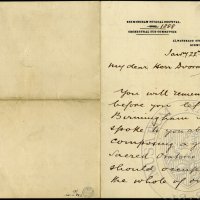 BIRMINGHAM MUSICAL FESTIVAL,
1888
ORCHESTRAL SUB-COMMITTEE
Jany 25
My dear Herr Dvora
You will reme
before you lef
Birmingham
spoke to you ab
composing a
Sacred Orator
should occup
the whole of o